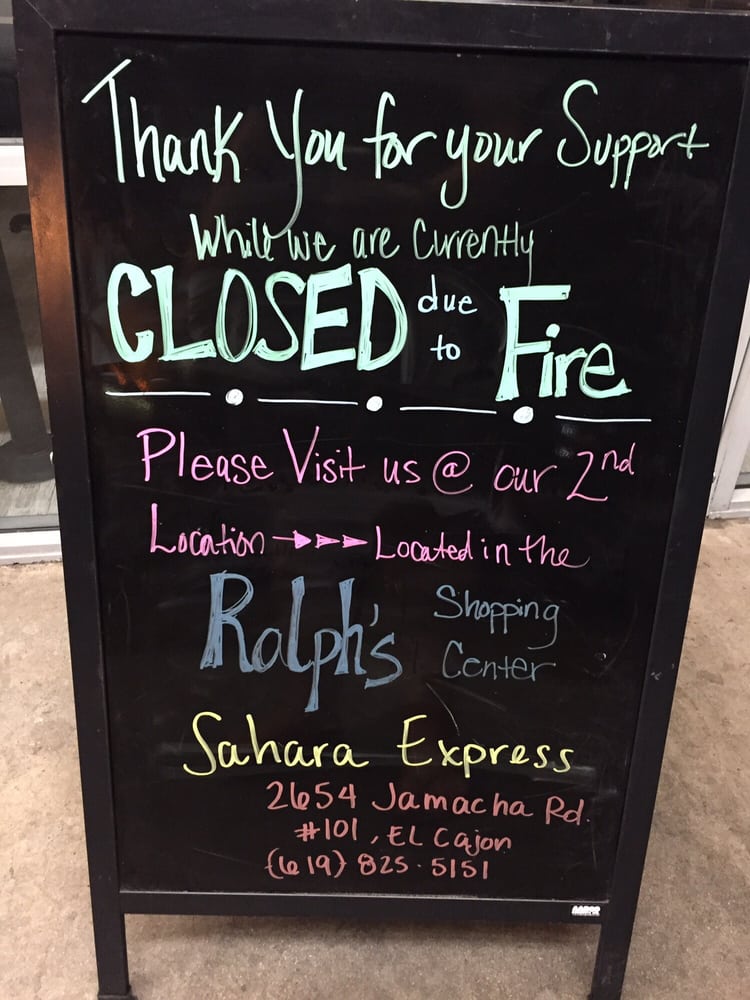 Thank You for your Support
While we are Currently
CLOSED due to Fire
Please Visit us @ our 2nd
Location Located in the
Ralph's Shopping Center
Sahara Express
2654 Jamacha Rd.
#101, EL Cajon
(619) 825-5151